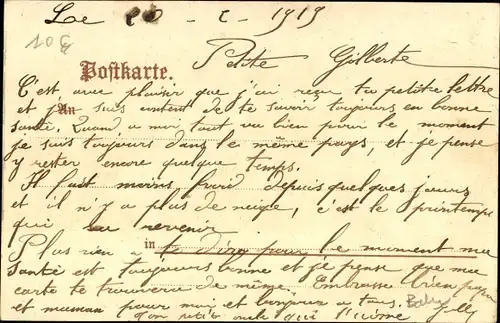 Le 20 - 2 - 1919
10 €
Petite Gilberte
Postkarte.
C'est avec plaisir que j'ai reçu ta petite lettre
An
et je suis content de te savoir toujours en bonne
santé. Quand a moi tout va bien pour le moment
je suis toujours dans le même pays, et je pense
y rester encore quelque temps.
Il fait moins froid depuis quelques jours
et il n'y a plus de neige, c'est le printemps
qui va revenir
in
Plus rien a te dire pour le moment ma
santé est toujours bonne et je pense que ma
carte te trouvera de même. Embrasse bien papa
et maman pour moi et bonjour a tous.
ton petit oncle qui t'aime